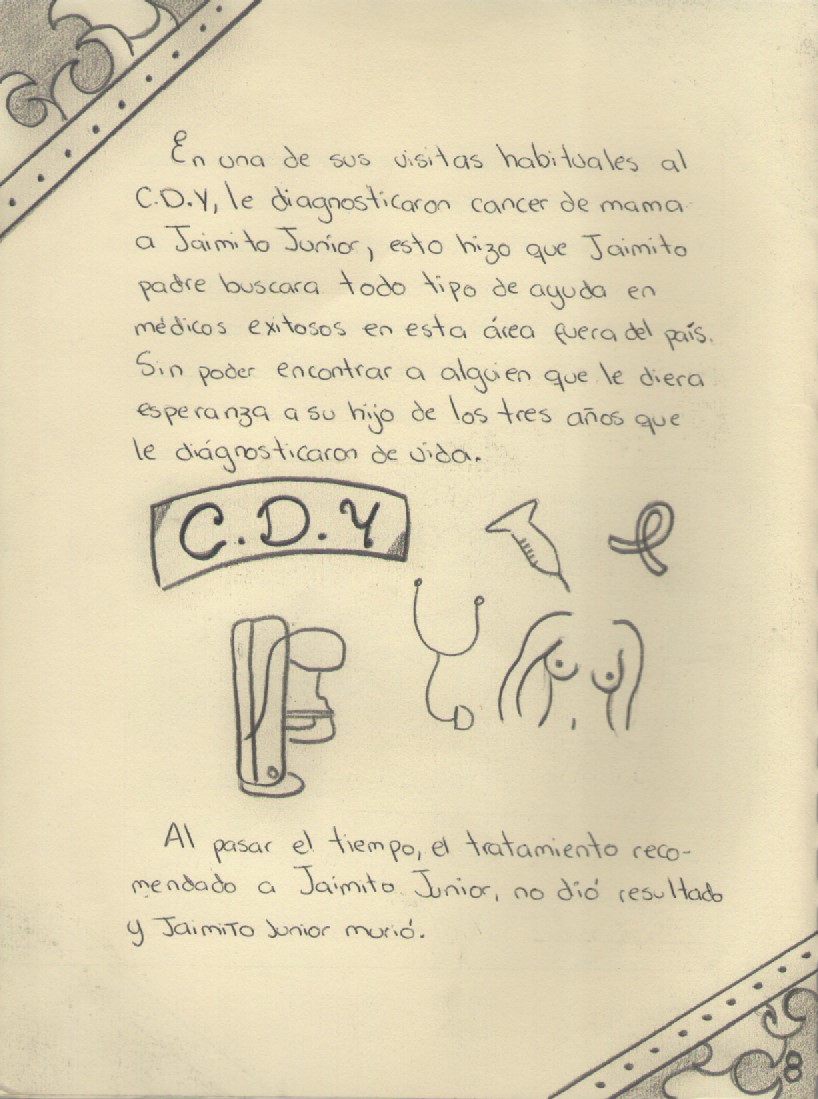 En una de sus visitas habituales al
C.D.Y, le diagnosticaron cancer de mama
a Jaimito Juníor, esto hizo que Jaimito
padre buscara todo tipo de ayuda en
médicos exitosos en esta área fuera del país.
Sin poder encontrar a alguien que le diera
esperanza a su hijo de los tres años que
le diágnosticaron de vida.
C.D.Y
Al pasar el tiempo, el tratamiento reco-
mendado a Jaimito Junior, no dió resultado
y Jaimito Junior murió.
8